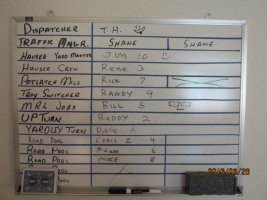 DISPATCHER T.H.
TRAFFIC MNGR. SHANE SHANE
HAUSER YARD MASTER JIM 10
HAUSER CREW REAR 3
POTLATCH MILL RICK 7
TROY SWITCHER RANDY 9
MRL JOBS BILL 5
UPTURN BUDDY 2
YARDLEY TURN DATE
ROAD POOL CHRIS 2 4
ROAD POOL 6
ROAD POOL MIKE 8